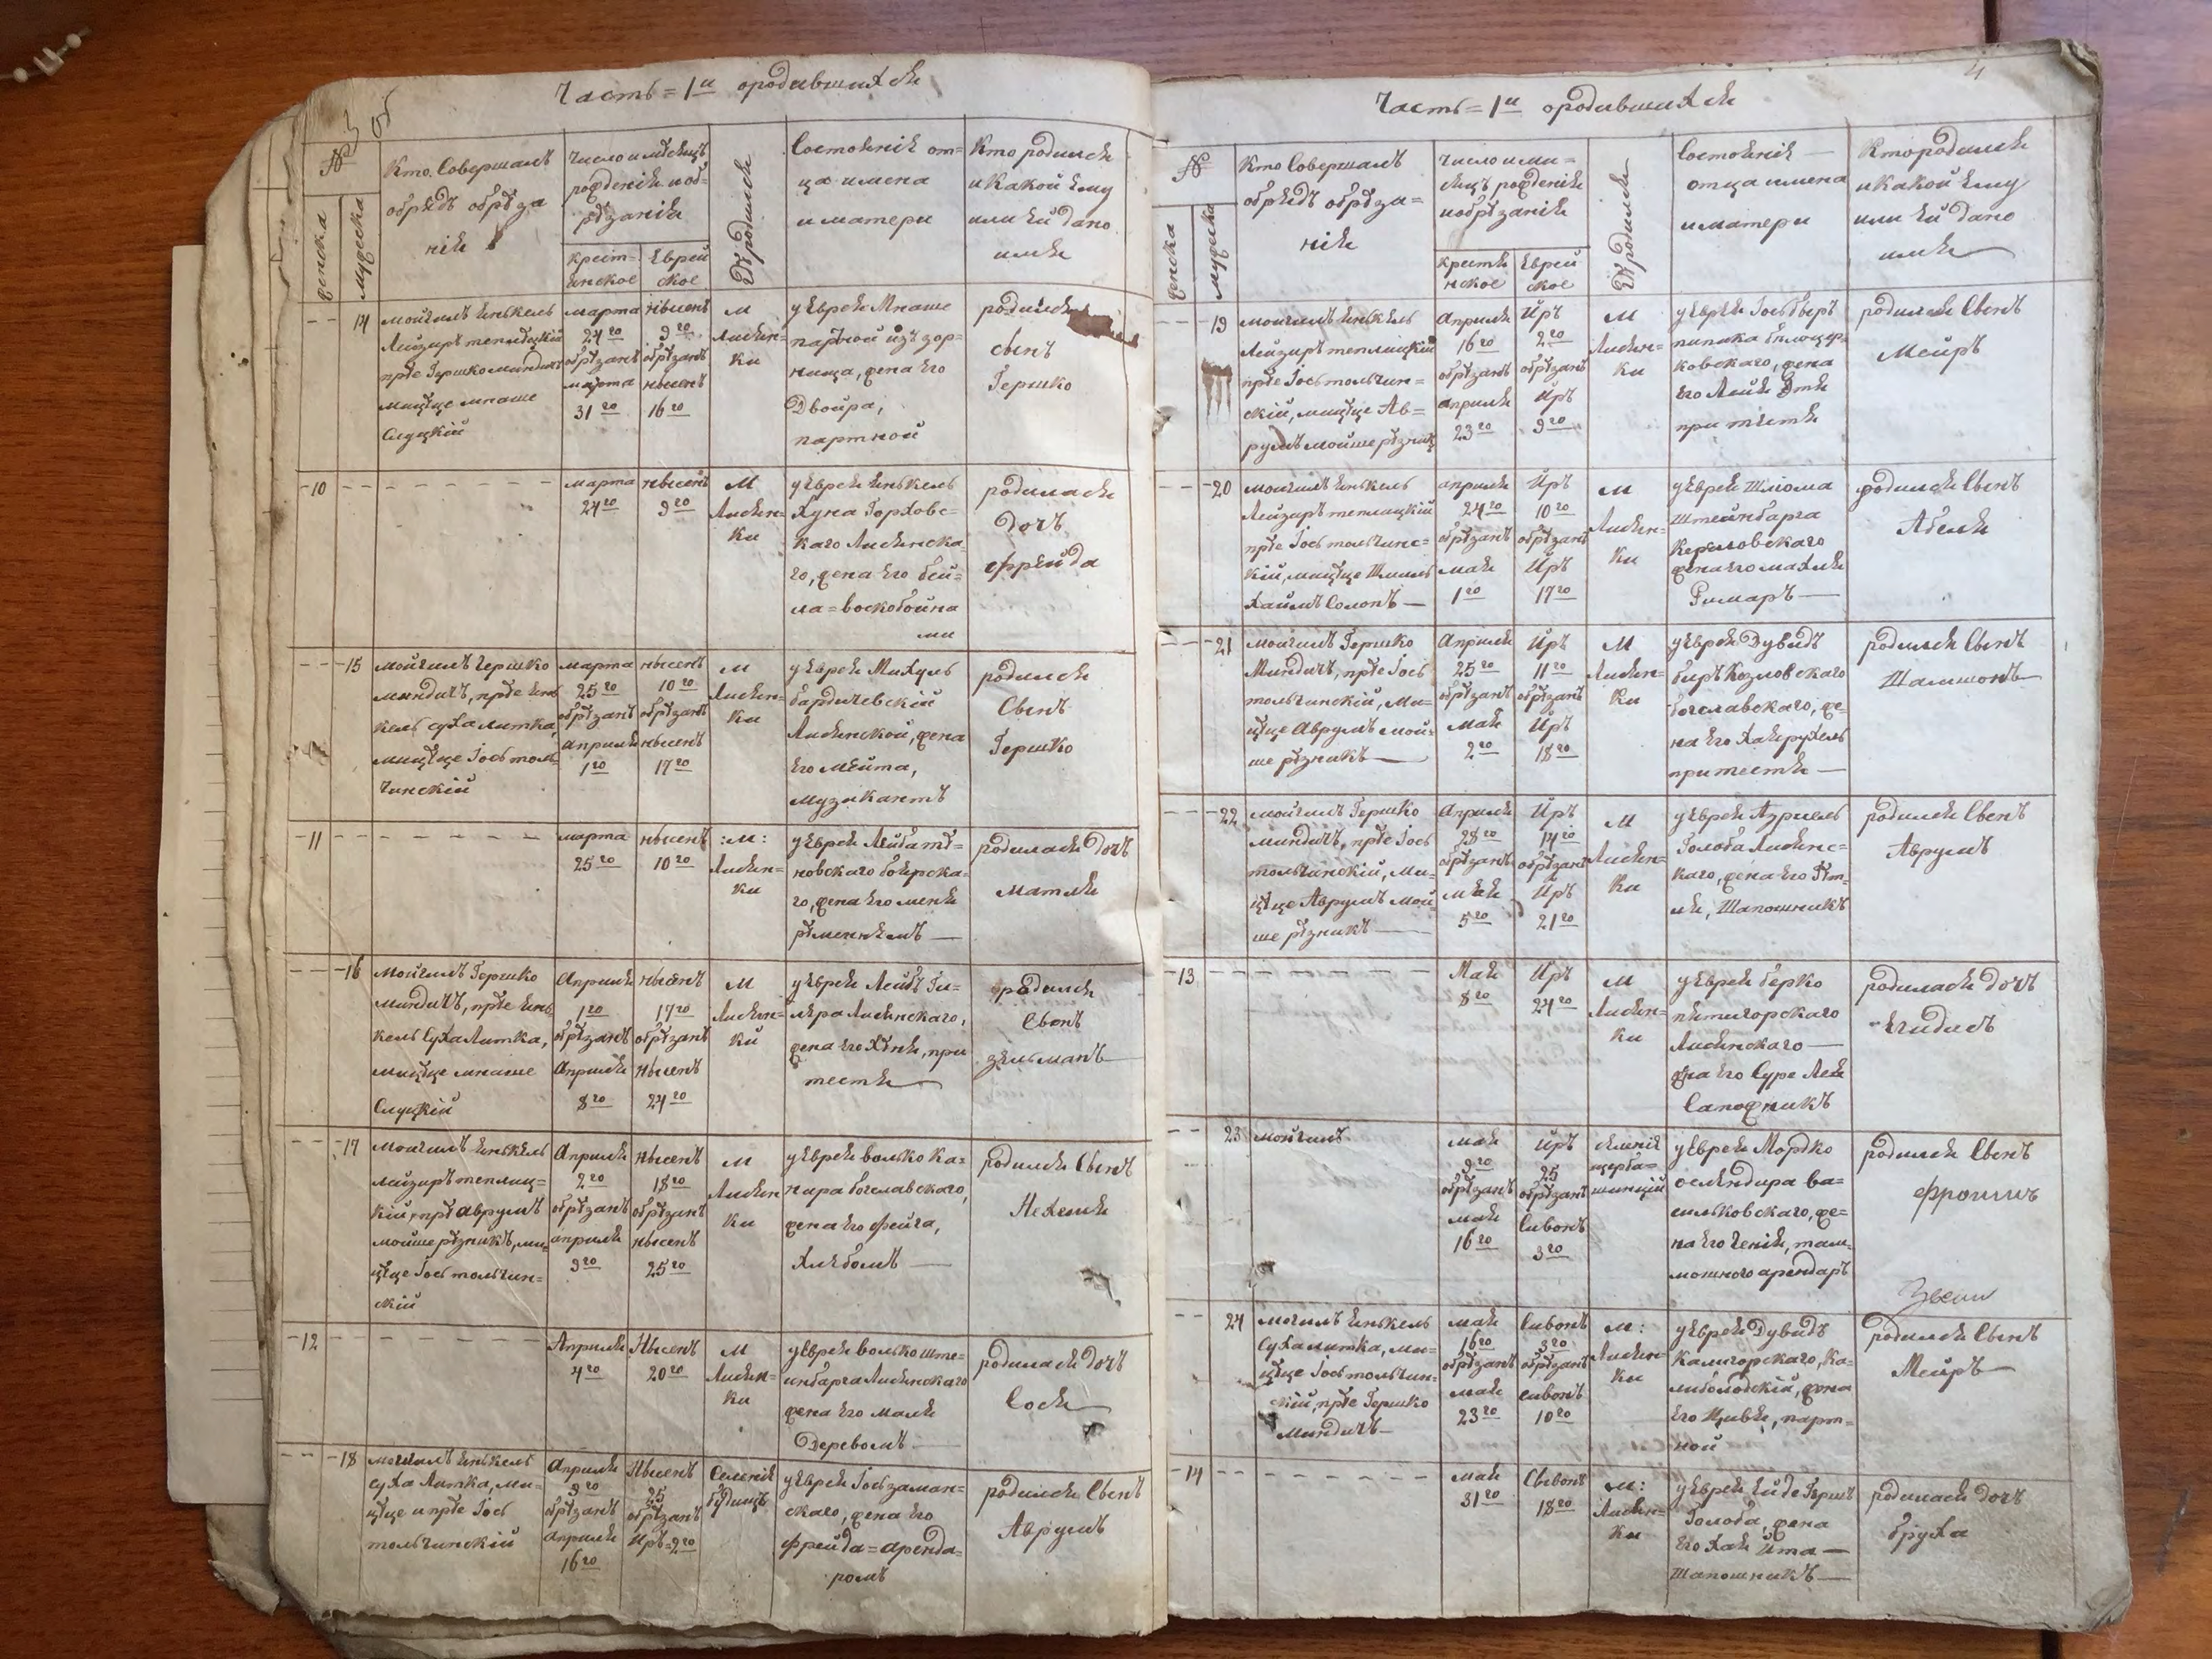 3 об
Часть = 1я ородившихся
№
женска
мужеска
Кто Совершалъ
обрядъ обреза
нія
число и месяцъ
рожденія и об=
резанія
христ=
іянское
Еврей
ское
Где родился
Состояніе от=
ца имена
и матери
Кто родился
и Какой Ему
или Ей дано
имя
14
мойгилъ янькель
Лейзиръ теплицкій
прѣе Гершко миндичъ
мицице мнаше
слуцкій
марта
24го
обрѣзанъ
марта
31го
нысенъ
9го
обрѣзанъ
нысенъ
16го
М
Лисян=
Ки
у Еврея Мнаше
партной изъ зор=
нища, жена Его
Двойра,
партной
родился
сынъ
Гершко
10
марта
24го
нысенъ
9го
М
Лисян=
Ки
у Еврея янькель
Хуна Горховс=
Каго Лисянска
го, жена Его бей=
ла = воскобойна
ми
родилася
дочъ
Фрейда
15
мойгилъ Гершко
миндичъ, прѣе янь
кель суха литка,
мицице Іось толь
чинскій
марта
25го
обрѣзанъ
априля
1го
нысенъ
10го
обрѣзанъ
нысенъ
17го
М
Лисян=
Ки
у Еврея Михуль
бардичевскій
Лисянской, жена
Его Мейта,
музикантъ
родился
Сынъ
Гершко
11
марта
25го
нысенъ
10го
:М:
Лисян=
Ки
у Еврея Лейба тѣ=
новскаго боярска=
го, жена Его меня
рѣменяемъ
родилася дочъ
матля
16
Мойгилъ Гершко
миндичъ, прѣе янь
кель суха Литка,
мицице мнаше
Слуцкій
Априля
1го
обрѣзанъ
Априля
8го
нысенъ
17го
обрѣзанъ
нысенъ
24го
М
Лисян=
Ки
у Еврея Лейбъ Ги=
лера Лисянскаго,
жена Его Хѣня, при
тестя
родился
Сынъ
зельманъ
17
Мойгилъ янькель
лейзиръ теплиц=
кій, прѣ аврумъ
мойше рѣзникъ, ми=
цице Іось тольчин=
скій
Априля
2го
обрѣзанъ
априля
9го
нысенъ
18го
обрѣзанъ
нысенъ
25го
М
Лисян
Ки
у Еврея волько Ка=
нира богславскаго,
жена Его фейга,
Хлѣбомъ
родился Сынъ
Нехемя
12
Априля
4го
Нысенъ
20го
М
Лисян=
Ки
у Еврея волько ште=
инбарга Лисянскаго
жена Его маля
Деревомъ
родилася дочъ
Сося
18
мойгилъ янькель
суха Литка, ми=
цице и прѣе Іось
тольчинскій
Априля
9го
обрѣзанъ
априля
16го
Нысенъ
25
обрѣзанъ
Иръ=2го
Селеніе
будищъ
у Еврея Іось заман=
скаго, жена Его
Фрейда = аренда=
ромъ
родился Сынъ
Аврумъ
4
Часть = 1я ородившихся
№
женска
мужеска
Кто Совершалъ
обрядъ обрѣза=
нія
Число и ми=
сяцъ рожденія
и обрѣзанія
христя
нское
Еврей
ское
Где родился
Состояніе
отца имена
и матери
Кто родился
и Какой Ему
или Ей дано
имя
19
мойгилъ янькель
Лейзиръ теплицкій
прѣе Іось тольчин=
скій, мицице Ав=
румъ мойше рѣзникъ
Априля
16го
обрѣзанъ
априля
23го
Иръ
2го
обрѣзанъ
Иръ
9го
М
Лисян=
Ки
у Еврея Іось Гверъ
пипика бѣлоцер=
ковскаго, жена
Его Лея Этя
при тестя
родился Сынъ
Меиръ
20
мойгилъ янькель
Лейзаръ теплицкій
прѣе Іось тольчинс=
кій, мицице Шмиль
Хаимъ Солопъ
априля
24го
обрѣзанъ
мая
1го
Иръ
10го
обрѣзанъ
Иръ
17го
М
Лисян=
Ки
у Еврея Шліома
Штейнбарга
Кереловскаго
жена Его махля
Римаръ
родился Сынъ
Абеля
21
мойгилъ Гершко
Миндичъ, прѣе Іось
тольчинскій, Ми=
цице Аврумъ мой=
ше рѣзникъ
Априля
25го
обрѣзанъ
Мая
2го
Иръ
11го
обрѣзанъ
Иръ
18го
М
Лисян=
Ки
у Еврея Дувидъ
биръ Козловскаго
богславскаго, же=
на Его Хаярухель
при тестя
родился Сынъ
Шамшонъ
22
Мойгилъ Гершко
миндичъ, прѣе Іось
тольчинскій, Ми=
цице Аврумъ мой=
ше рѣзникъ
Априля
28го
обрѣзанъ
Мая
5го
Иръ
14го
обрѣзанъ
Иръ
21го
М
Лисян=
Ки
у Еврея Азриель
Голоба Лисянс=
каго, жена Его Ит=
ля, Шапошникъ
родился Сынъ
Аврумъ
13
Мая
8го
Иръ
24го
М
Лисян=
Ки
у Еврея берко
пятигорскаго
Лисянскаго
жена Его Суре Лея
Сапожникъ
родилася дочъ
Егидисъ
23
мойгилъ
мая
9го
обрѣзанъ
мая
16го
Иръ
25
обрѣзанъ
Сивонъ
3го
селеніе
щерба=
шинцій
у Еврея Мордко
ослендира ва=
сильковскаго, же=
на Его Геніе, там=
можного арендаръ
родился Сынъ
Фроимъ
24
могилъ янькель
Суха литка, ми=
цице Іось тольчин=
скій, прѣе Гершко
миндичъ
мая
16го
обрѣзанъ
мая
23го
Сивонъ
3го
обрѣзанъ
сивонъ
10го
М:
Лисян=
Ки
у Еврея Дувидъ
Калигорскаго, Ка=
либолодскій, жена
Его Цивя, парт=
ной
родился Сынъ
Меиръ
14
мая
31го
Сывонъ
18го
М:
Лисян=
Ки
у Еврея Ейде Гершъ
Голоба, жена
Его Хая Ита
Шапошникъ
родилася дочъ
бруха